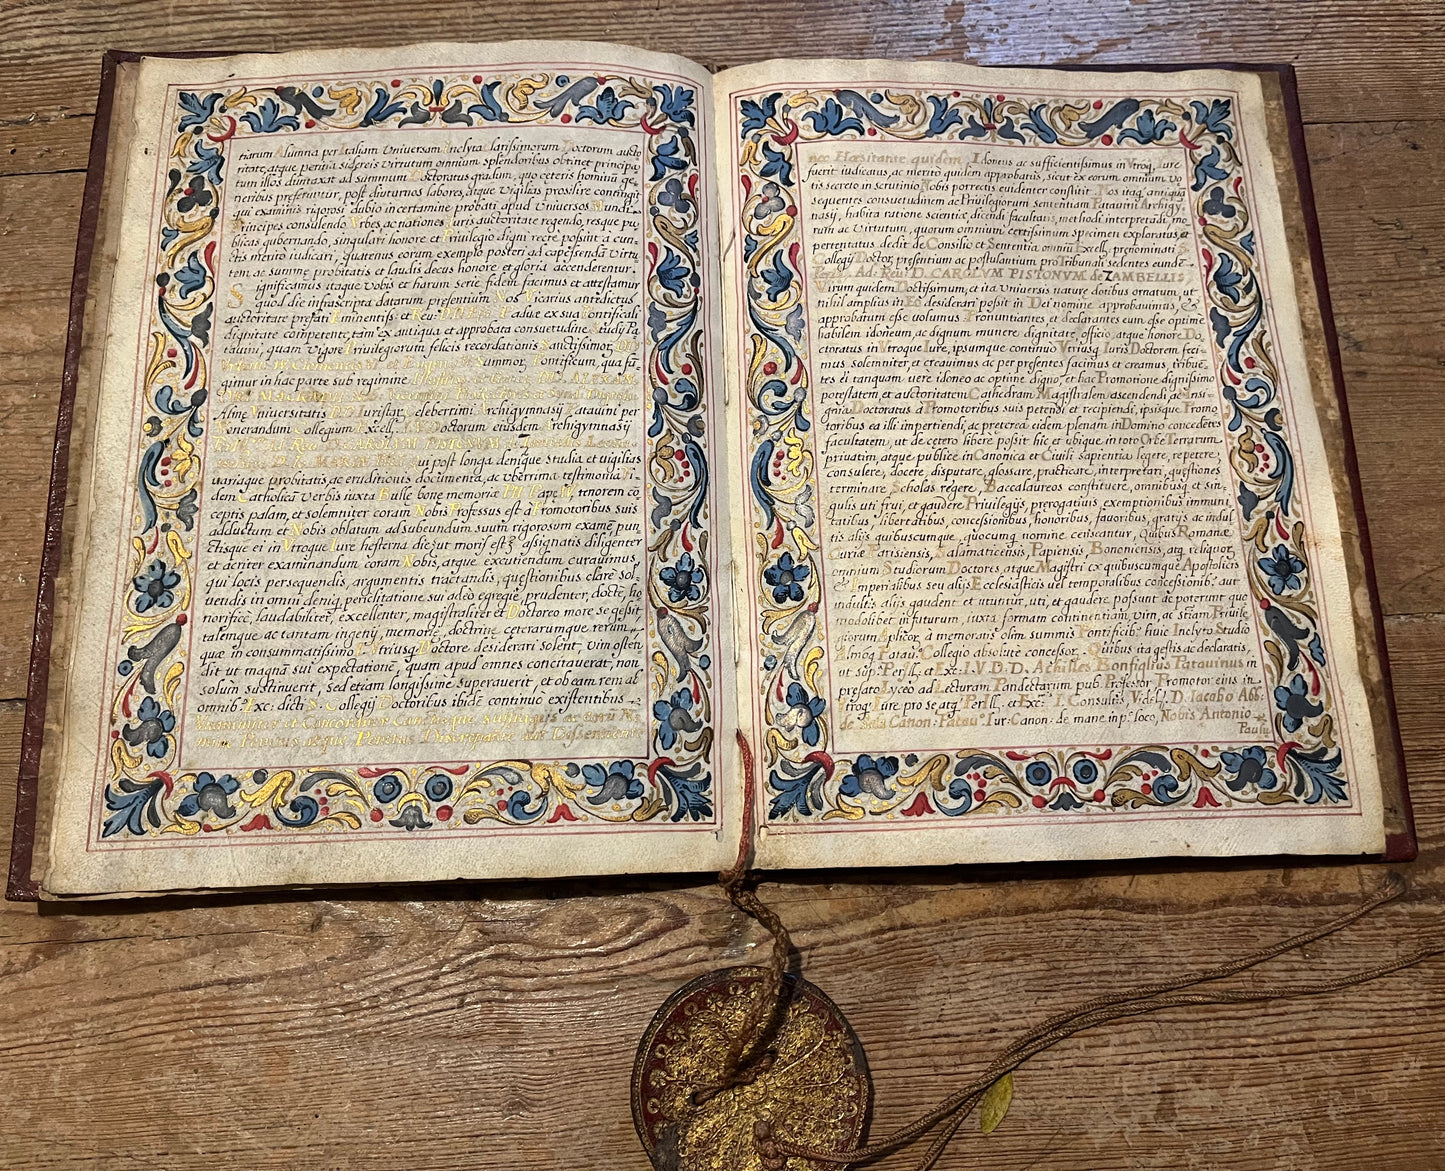 tiarum Alumna per Italiam Universam Inclyta Clarissimorum Doctorum aucto
ritate, atque penna sidereis Virtutum omnium splendoribus obtinet principa
tum illos dumtaxat ad summum Doctoratus gradum, quo ceteris hominū ge,
neribus preferuntur, post diuturnos labores, atque Vigilias prosilire contingit
qui examinis rigorosi dubio in certamine probati apud Universos Mundi
Principes consulendo Urbes ac nationes Iuris auctoritate regendo, resque pu
blicas gubernando, singulari honore et Privilegio digni recte possint a cun=
ctis merito iudicari, quatenus eorum exemplo posteri ad capessendā Virtu
tem ac summe probitatis et laudis decus honore et gloria accenderentur.
Significamus itaque Vobis et harum serie fidem facimus et attestamur
quod die infrascripta datarum presentium Nos Vicarius antedictus
auctoritate prefati Eminentiss. et Reu. Paduæ ex sua Pontificali
dignitate competente, tam ex antiqua et approbata consuetudine Study Pa
tauini, quam Vigore Priuilegiorum felicis recordationis Sanctissimor.
Urbani IV Clementis VI et Eugenij Summor. Pontificum, qua fū
gimur in hac parte sub regimine ALEXAN
DRI
Alme Universitatis DD. Iuristarū Celeberrimi Archigymnasÿ Patauini per
Venerandum Collegium Excell. I.V. Doctorum eiusdem Archigymnasÿ
CAROLUM PISTONUM
qui post longa denique studia et uigilias
uariaque probitatis ac eruditionis documenta, ac uberrima testimonia Fi
dem Catholicā Verbis iuxta Bullæ bone memoriæ PII Papę IV. tenorem co
ceptis palam, et solemniter coram Nobis Professus est à Promotoribus suis
adductum et Nobis oblatum ad subeundum suum rigorosum examē pun
ctisque ei in Utroque Iure hesterna die, ut moris est assignatis diligenter
et acriter examinandum coram Nobis, atque excutiendum curauimus,
qui locis persequendis, argumentis tractandis, quęstionibus clarè sol=
uendis in omni deniq, periclitatione sui adeò egregiè, prudenter, doctè, ho
norificè, laudabiliter, excellenter, magistraliter et Doctoreo more se gessit
talemque ac tantam ingenÿ, memoriæ, doctrinæ ceterarumque rerum,
quæ in consummatissimo I. Utriusq, Doctore desiderari solent, uim osten
dit ut magnā sui expectationē, quam apud omnes concitauerat, non
solum sustinuerit, sed etiam longissime superauerit, et ob eam rem ab
omnib. Exc: dicti S. Collegÿ Doctoribus ibidē continuò existentibus
Unanimiter et Concorditer Cunctisque suffragijs ac eorū Ne
mine Penitus atque Penitus Discrepante aut Dissentiente
nec Hæsitante quidem Idoneus ac sufficientissimus in Utroq, Iure
fuerit iudicatus, ac meritò quidem approbatus, sicut ex eorum omnium Vo
tis secreto in scrutinio Nobis porrectis euidenter constitit. Nos itaq, antiquā
sequentes consuetudinem ac Priuilegiorum sententiam Patauini Archigy=
nasÿ, habita ratione scientiæ, dicendi facultatis, methodi interpretādi mo
rum ac Virtutum, quorum omnium certissimum specimen exploratus, et
pertentatus dedit de Consilio et Sententia omniū Excell. prenominati S.
Collegÿ Doctor. presentium ac postulantium pro Tribunali sedentes eundē
Perill. Ad: Reu: D. CAROLVM PISTONVM de ZAMBELLIS
Virum quidem Doctissimum, et ita Universis naturæ doribus ornatum, ut
nihil amplius in Eo desiderari possit in Dei nomine approbauimus, et
approbatum esse volumus Pronuntiantes et declarantes eum esse optime
habilem idoneum, ac dignum munere dignitate, officio, atque honore Do
ctoratus in Utroque Iure, ipsumque continuò Utriusq, Iuris Doctorem feci
mus solemniter, et creauimus ac per presentes facimus et creamus, tribuē=
tes ei tanquam uerè idoneo ac optimè digno, et hac Promotione dignissimo
potestatem, et auctoritatem Cathedram Magistralem ascendendi ac Insi=
gnia Doctoratus à Promotoribus suis petendi et recipiendi, ipsisque Promo
toribus ea illi impertiendi, ac preterea eidem plenam in Domino concedētes
facultatem, ut de cetero liberè possit hic et ubique in toto Orbe Terrarum,
priuatim, atque publicè in Canonica et Ciuili sapientia legere, repetere,
consulere, docere, disputare, glossare, practicare, interpretari, quęstiones
terminare Scholas regere, Baccalaureos constituere, omnibusq, et sin=
gulis uti frui, et gaudere Priuilegÿs, prerogatiuis, exemptionibus immuni
tatibus, libertatibus, concessionibus, honoribus, fauoribus, gratÿs ac indul
tis alÿs quibuscumque, quocumq, nomine censeantur, Quibus Romanæ
Curiæ Parisiensis, Salamaticensis, Papiensis, Bononiensis, atq, reliquor,
omnium Studiorum Doctores, atque Magistri ex quibuscumque Apostolicis
Imperialibus seu alijs Ecclesiasticis uel temporalibus concessionib. aut
indultis alijs gaudent et utuntur, uti, et gaudere possunt ac poterunt quo
modolibet in futurum, iuxta formam continentiam, uim, ac seriem Priuile
giorum Aplicor. à memoratis olim summis Pontificib. huic Inclyto Studio
Almoq, Patau. Collegio absolutè concessor. Quibus ita gestis ac declaratis,
ut sup. Perill. et Exc: I.V.D.D. Achilles Bonfiglius Patauinus in
prefato Lyceo ad Lecturam Pandectarum pub. Professor Promotor eius in
Utroq, Iure pro se atq, Perill. et Exc: I. Consultis, Videl. D. Iacobo Abb:
de Sala Canon: Patau. Iur: Canon: de mane in p.º loco, Nobis Antonio
Paulu